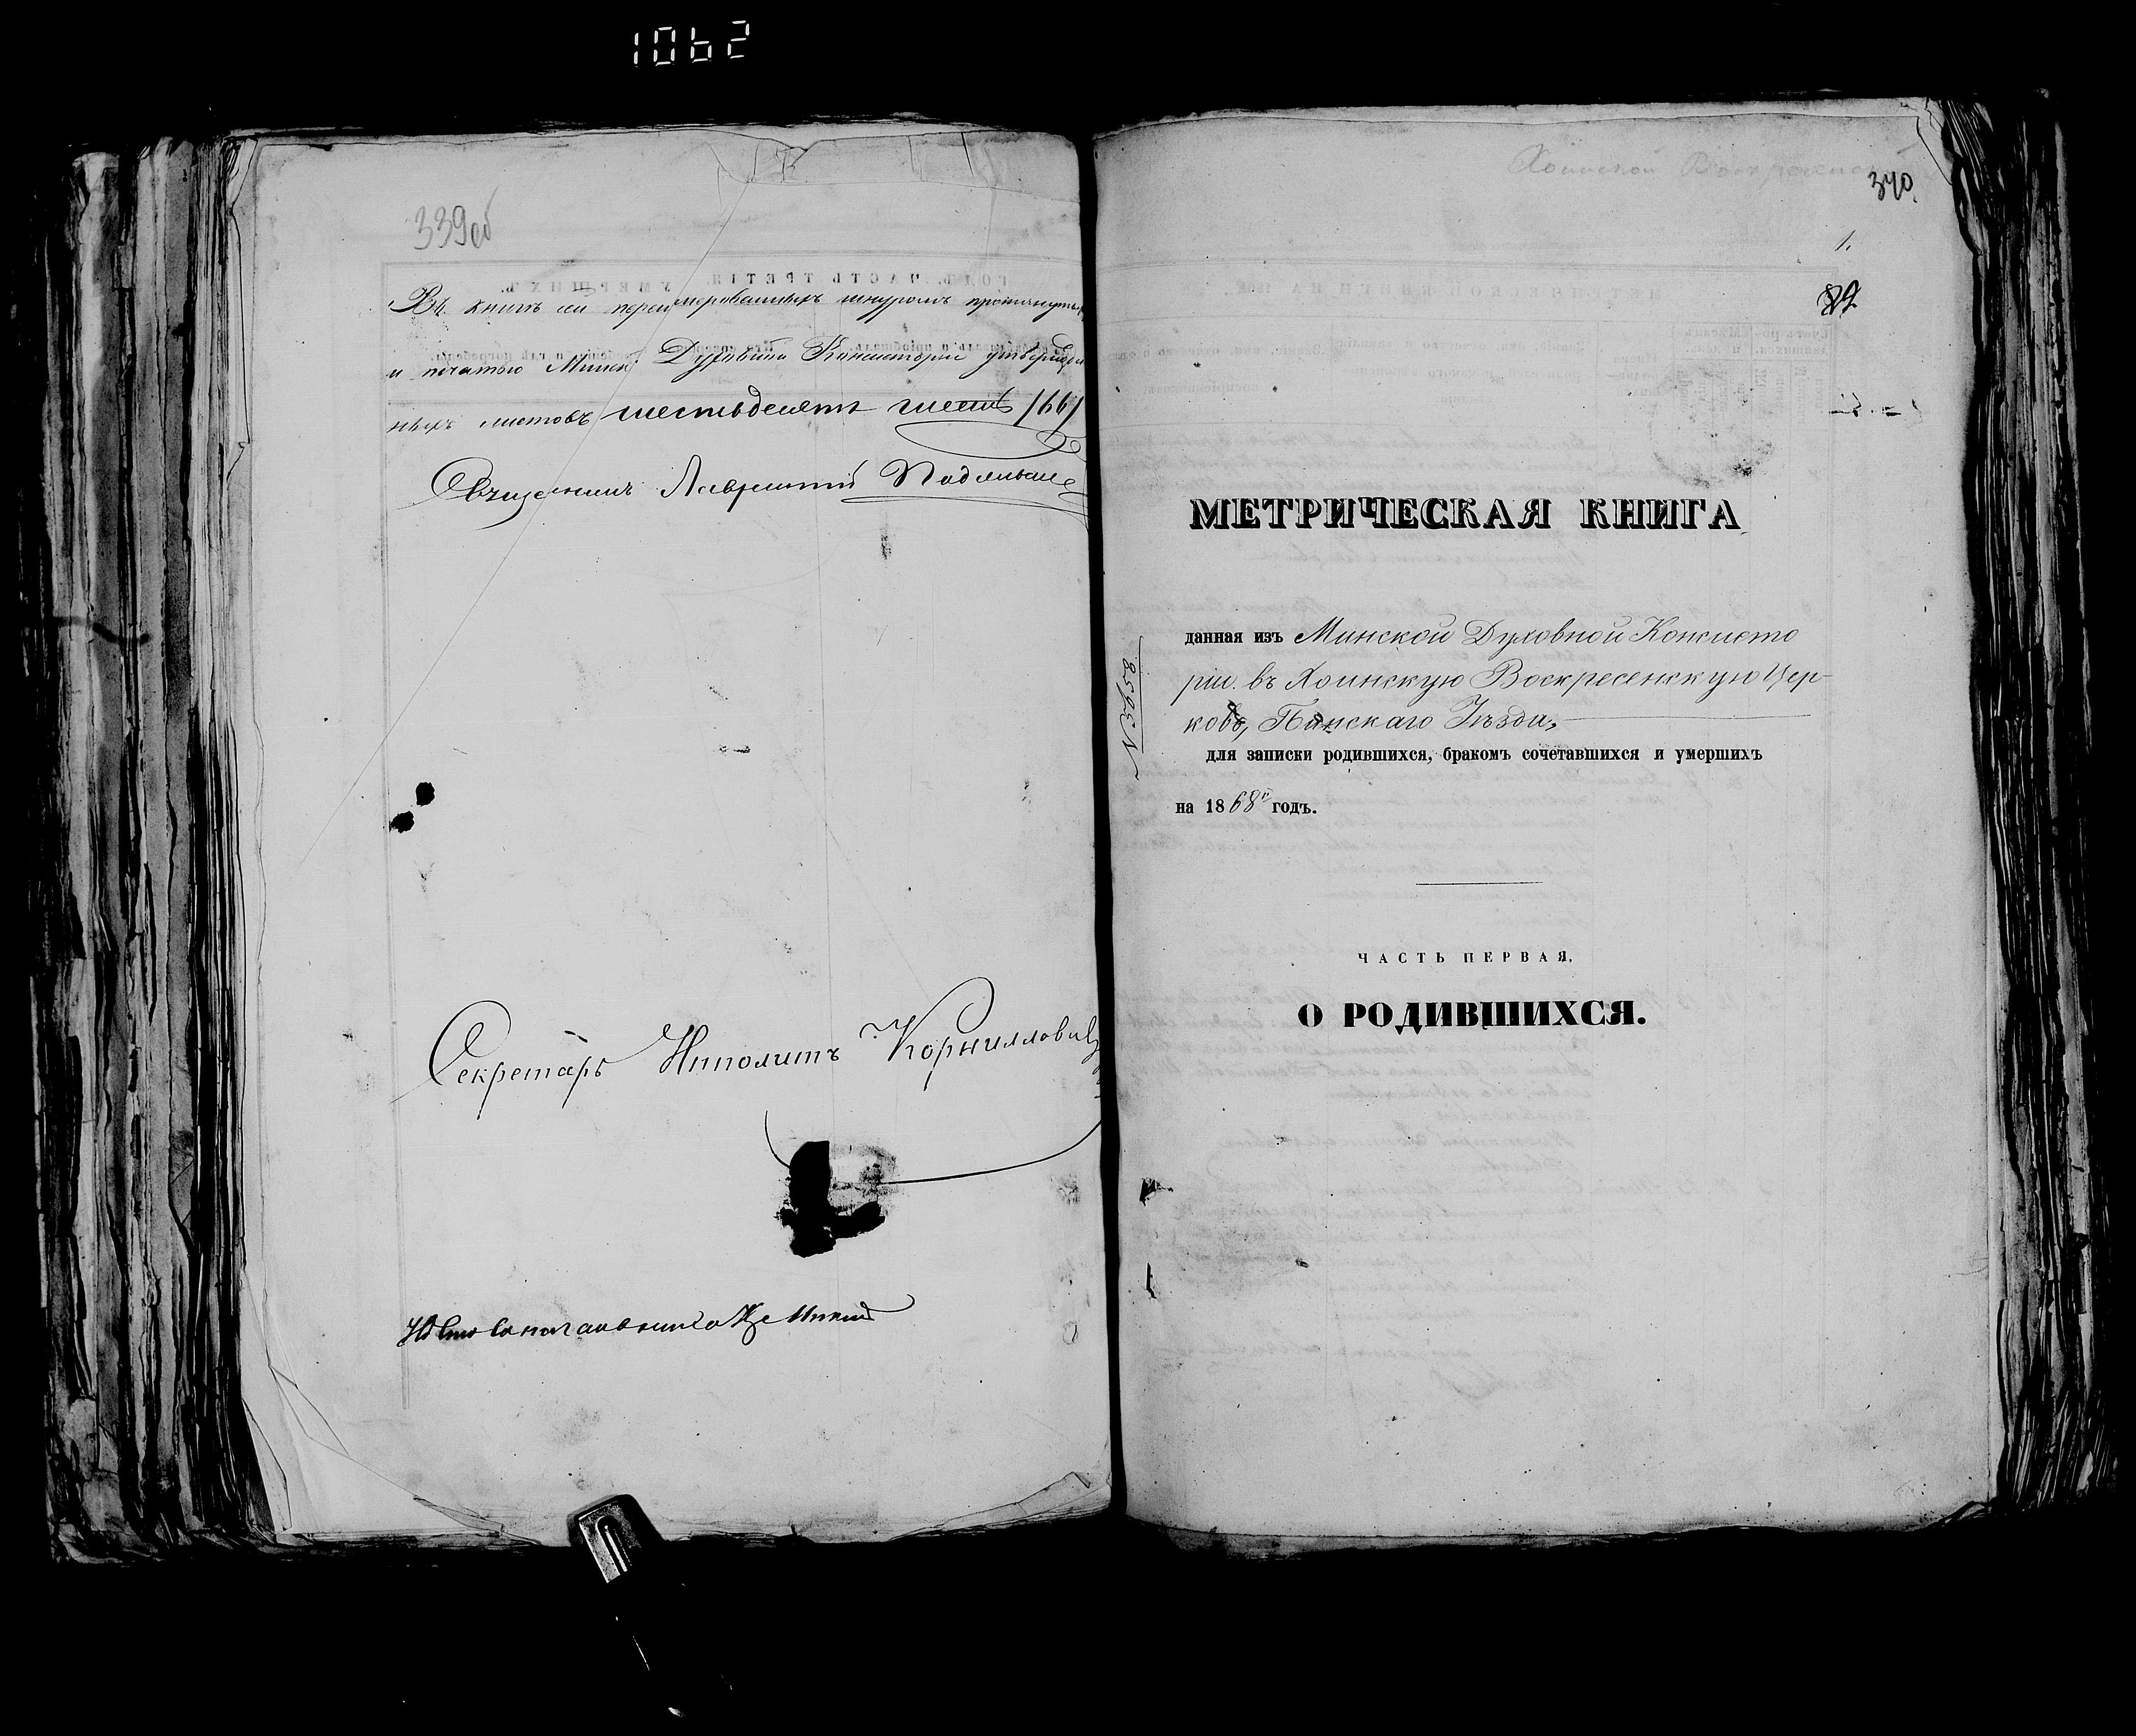 1062
339об
Въ книгѣ сей перенумерованныхъ шнуромъ протянутыхъ
и печатью Минск. Духовной Консисторіи утвержден
ныхъ листовъ шестьдесятъ шесть /66/
Священникъ Лаврентій
Секретарь Ипполитъ Корниллович
Хоинской Воскресенской
340.
1.
МЕТРИЧЕСКАЯ КНИГА
данная изъ Минской Духовной Консисто
ріи въ Хоинскую Воскресенскую Цер-
ковь, Пинскаго Уѣзда,
для записки родившихся, бракомъ сочетавшихся и умершихъ
на 1868й годъ.
ЧАСТЬ ПЕРВАЯ.
О РОДИВШИХСЯ.